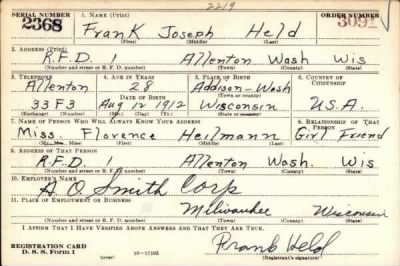 2219
SERIAL NUMBER 1. NAME (Print) ORDER NUMBER
2368 Frank Joseph Held 3091
(First) (Middle) (Last)
2. ADDRESS (Print)
R.F.D. Allenton Wash Wis
(Number and street or R. F. D. number) (Town) (County) (State)
3. TELEPHONE 4. AGE IN YEARS 5. PLACE OF BIRTH 6. COUNTRY OF CITIZENSHIP
Allenton 28 Addison-Wash
DATE OF BIRTH (Town or county)
33F3 Aug 12 1912 Wisconsin U.S.A.
(Exchange) (Number) (Mo.) (Day) (Yr.) (State or country)
7. NAME OF PERSON WHO WILL ALWAYS KNOW YOUR ADDRESS 8. RELATIONSHIP OF THAT PERSON
Miss. Florence Heilmann Girl Friend
(Mr., Mrs., Miss) (First) (Middle) (Last)
9. ADDRESS OF THAT PERSON
R.F.D. 1 Allenton Wash. Wis
(Number and street or R. F. D. number) (Town) (County) (State)
10. EMPLOYER'S NAME
A.O. Smith Corp
11. PLACE OF EMPLOYMENT OR BUSINESS
Milwaukee Wisconsin
(Number and street or R. F. D. number) (Town) (County) (State)
I AFFIRM THAT I HAVE VERIFIED ABOVE ANSWERS AND THAT THEY ARE TRUE.
REGISTRATION CARD Frank Held
D. S. S. Form 1 (over) 16-17105 (Registrant's signature)